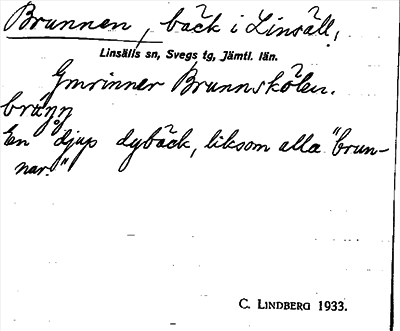 Brunnen, bäck i Linsäll,
Linsälls sn, Svegs tg, Jämtl. län.
Gmrinner Brunnskölen.
bru̇ŋŋ
En djup dybäck, liksom alla "brun-
nar."
C. LINDBERG 1933.